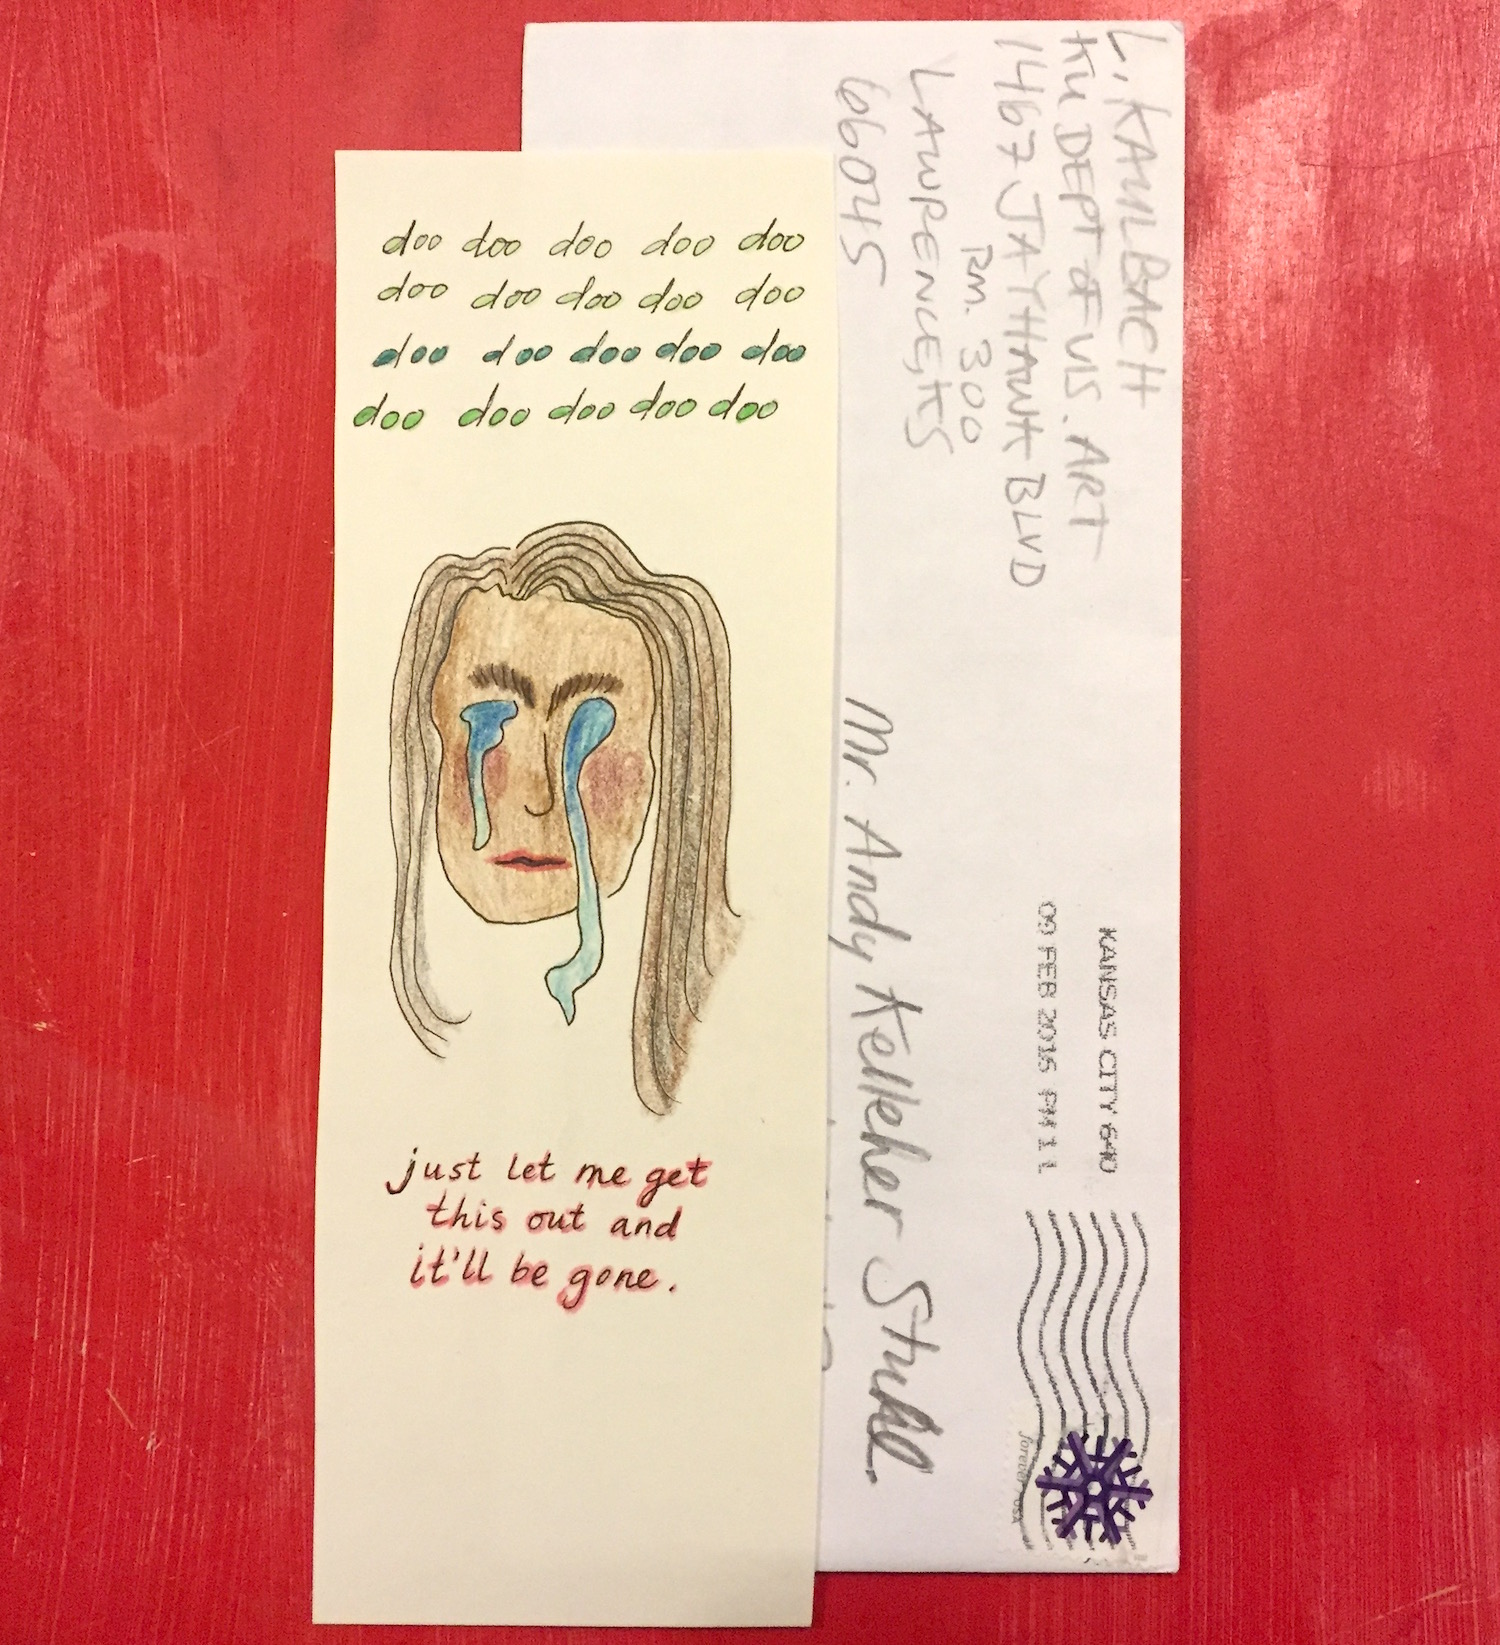 doo doo doo doo doo
doo doo doo doo doo
doo doo doo doo doo
doo doo doo doo doo
just let me get
this out and
it'll be gone.
L. KAULBACH
KU DEPT OF VIS. ART
1467 JAYHAWK BLVD
RM. 300
LAWRENCE, KS
66045
KANSAS CITY 640
09 FEB 2016 PM 1 L
forever USA
Mr. Andy Kelleher Stuhl.